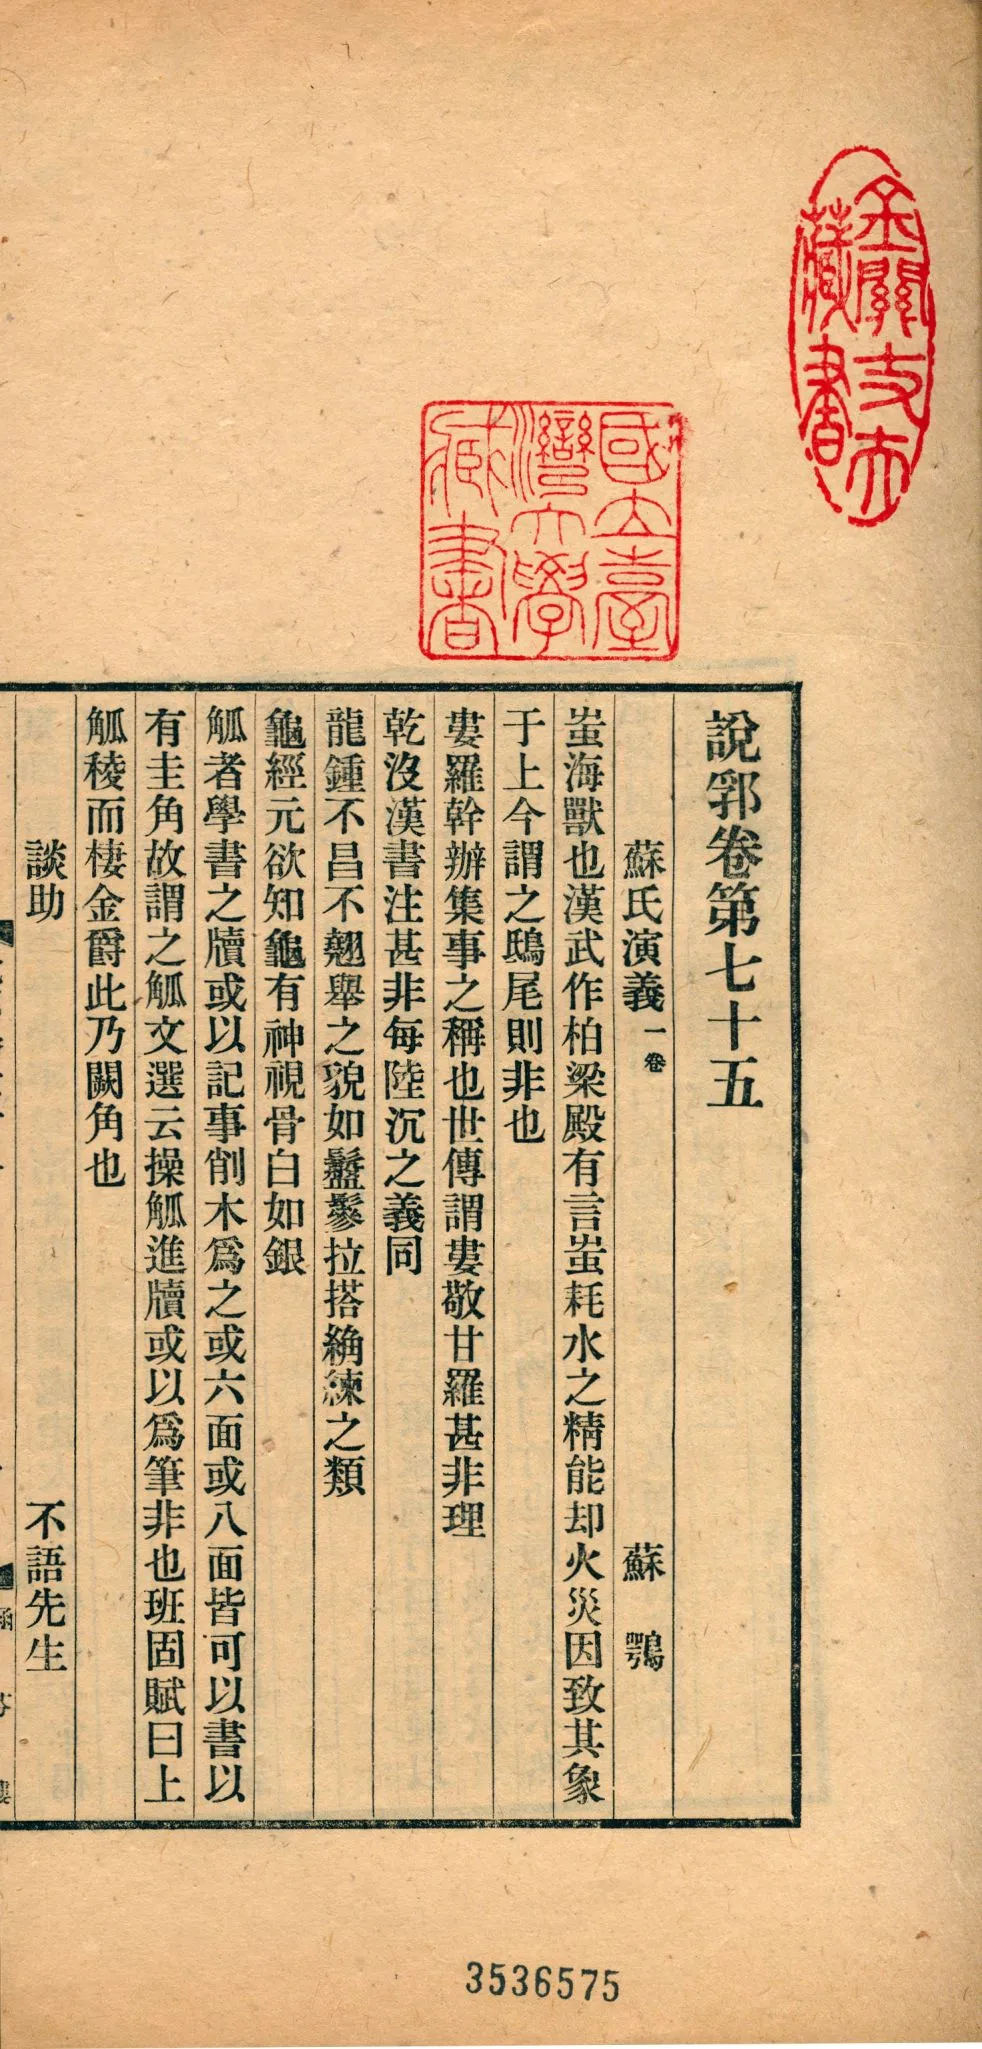 說郛卷第七十五
蘇氏演義一卷 蘇鶚
蚩海獸也漢武作柏梁殿有言蚩耗水之精能却火災因致其象
于上今謂之鴟尾則非也
婁羅幹辦集事之稱也世傳謂婁敬甘羅甚非理
乾沒漢書注甚非每陸沉之義同
龍鍾不昌不翹舉之貌如𩭹鬖拉搭縋練之類
龜經元欲知龜有神視骨白如銀
觚者學書之牘或以記事削木爲之或六面或八面皆可以書以
有圭角故謂之觚文選云操觚進牘或以爲筆非也班固賦曰上
觚稜而棲金爵此乃闕角也
談助 不語先生
國立臺灣大學藏書
金關丈夫藏書
3536575